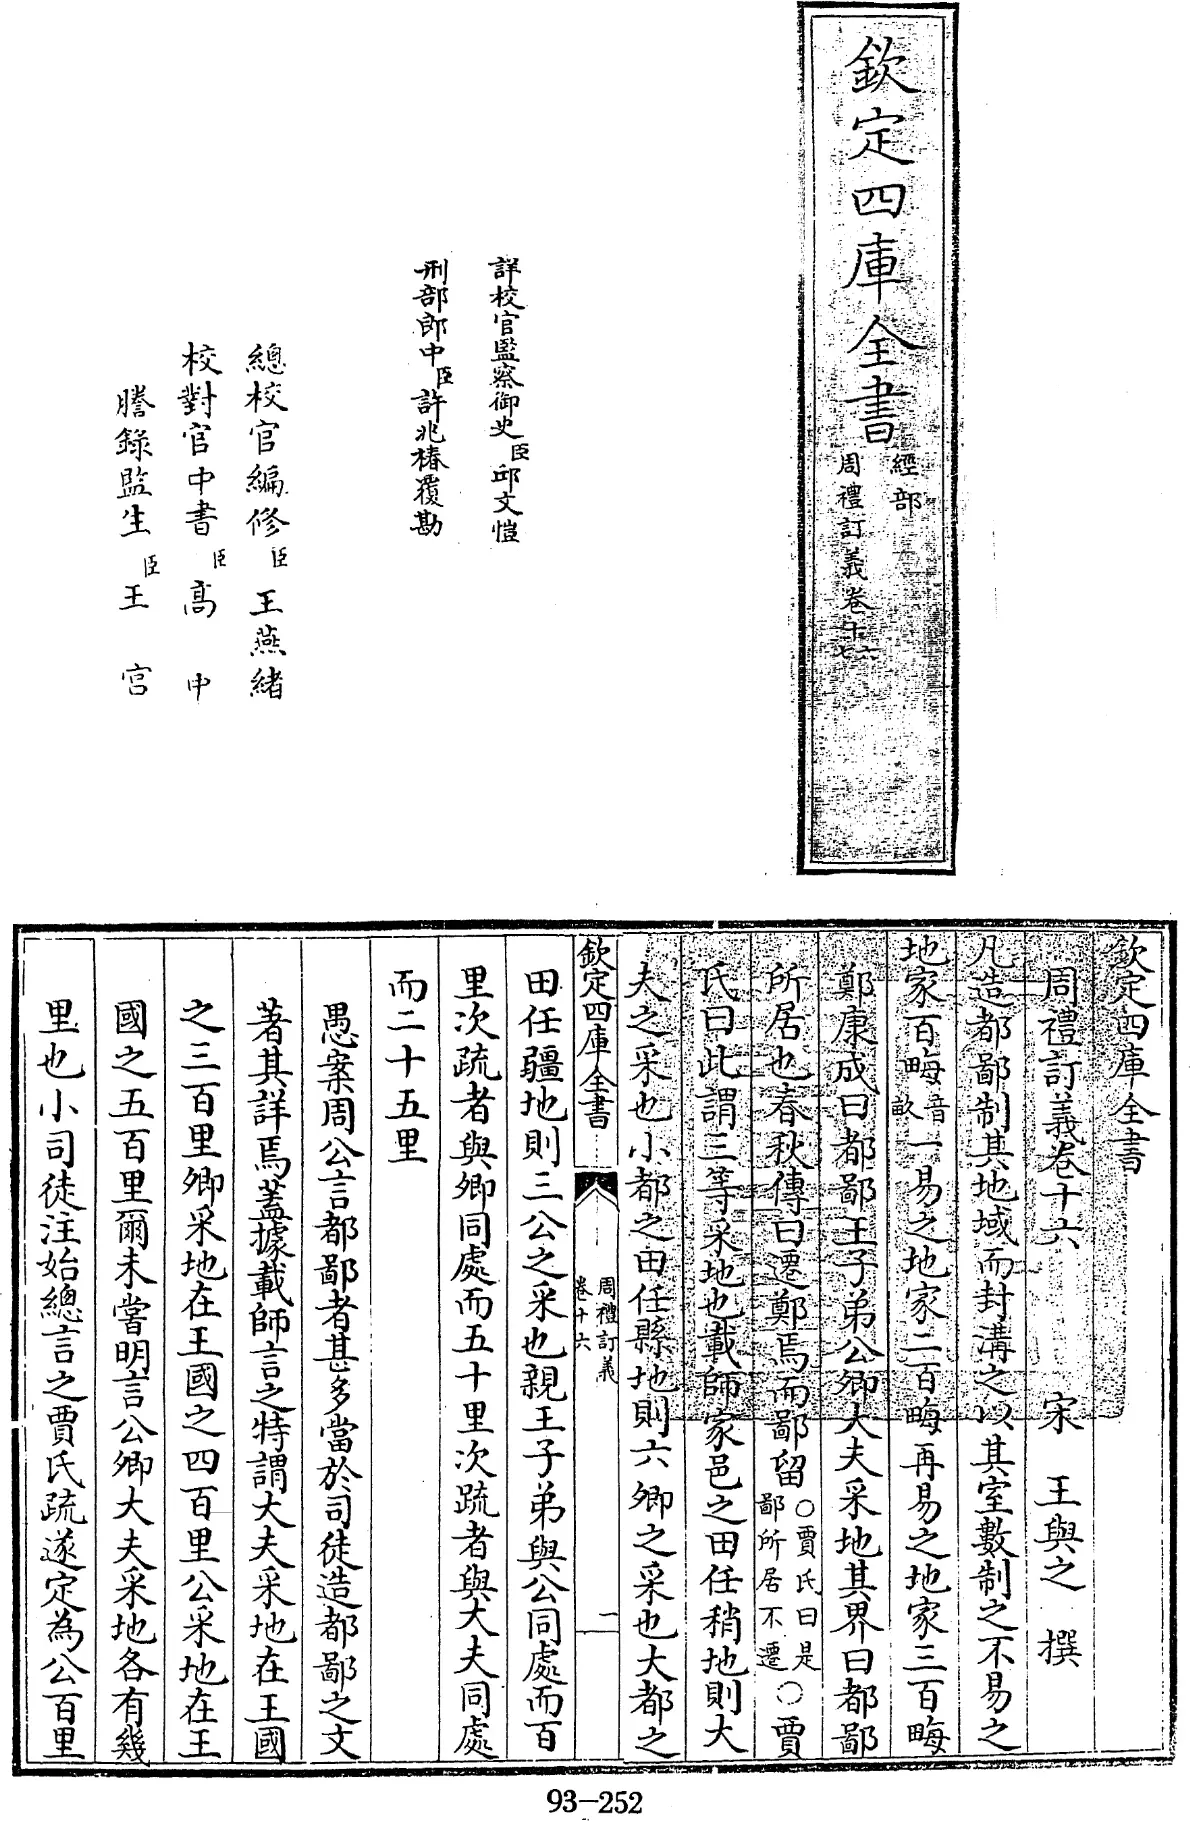 欽定四庫全書
經部
周禮訂義卷十六
七
詳校官監察御史臣邱文愷
刑部郎中臣許兆椿覆勘
總校官編修臣王燕緒
校對官中書臣高中
謄錄監生臣王宫
欽定四庫全書
周禮訂義卷十六 宋 王與之 撰
凡造都鄙制其地域而封溝之以其室數制之不易之
地家百畮音畝一易之地家二百畮再易之地家三百畮
鄭康成曰都鄙王子弟公卿大夫采地其界曰都鄙
所居也春秋傳曰遷鄭焉而鄙留○賈氏曰是鄙所居不遷○賈
氏曰此謂三等采地也載師家邑之田任稍地則大
夫之采也小都之田任縣地則六卿之采也大都之
欽定四庫全書
周禮訂義
卷十六
一
田任疆地則三公之采也親王子弟與公同處而百
里次疏者與卿同處而五十里次疏者與大夫同處
而二十五里
愚案周公言都鄙者甚多當於司徒造都鄙之文
著其詳焉蓋據載師言之特謂大夫采地在王國
之三百里卿采地在王國之四百里公采地在王
國之五百里爾未嘗明言公卿大夫采地各有幾
里也小司徒注始總言之賈氏疏遂定為公百里
93-252